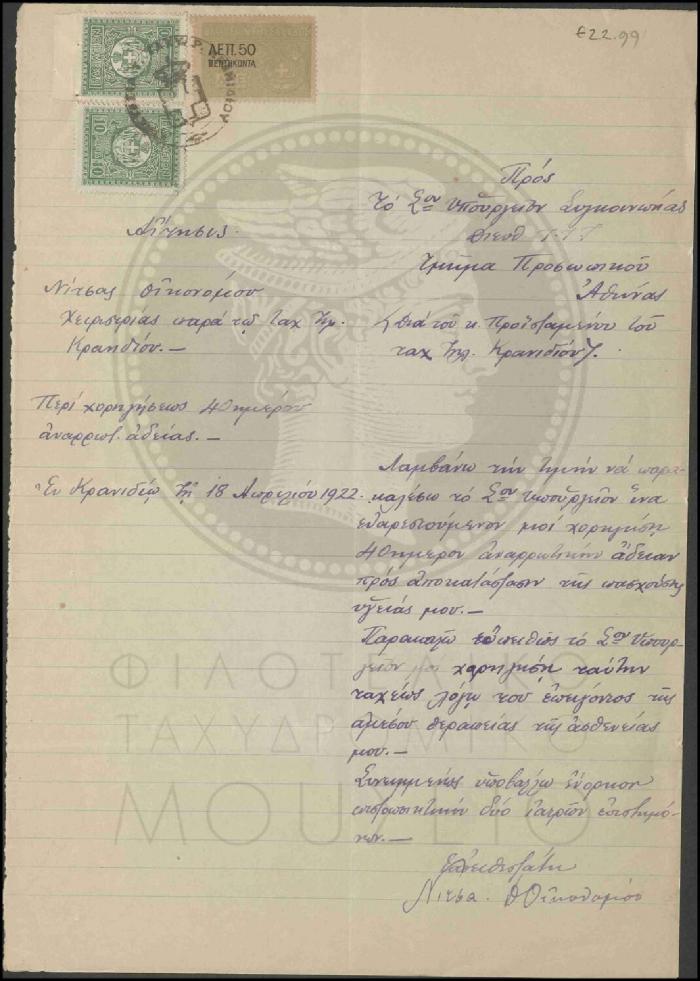 £22.99
ΛΕΠ. 50
ΠΕΝΤΗΚΟΝΤΑ
10
10
Πρός
Τό Σον Υπουργείον Συγκοινωνίας
Διευθ Τ.Τ.Τ
Τμήμα Προσωπικού
Αθήνας
(διά του κ. Προϊσταμένου του
ταχ τηλ. Κρανιδίου).
Αίτησις.
Νίτσας Οικονόμου
Χειριστρίας παρά τω ταχ τηλ.
Κρανιδίου.—
Περί χορηγήσεως 40ημέρου
αναρρωτ. αδείας.—
Εν Κρανιδίω τη 18 Απριλίου 1922.
Λαμβάνω την τιμήν να παρα-
καλέσω το Σον Υπουργείον ίνα
ευαρεστούμενον μοί χορηγήση
40ήμερον αναρρωτικήν άδειαν
πρός αποκατάστασιν της πασχούσης
υγείας μου.—
Παρακαλώ ευπειθώς το Σον Υπουρ-
γείον μοι χορηγήση ταύτην
ταχέως λόγω του επείγοντος της
αμέσου θεραπείας της ασθενείας
μου.—
Συνημμένως υποβάλλω ένορκον
πιστοποιητικήν δύο ιατρών επιστημό-
νων.—
Ευπειθεστάτη
Νίτσα Θ Οικονόμου
ΦΙΛΟΤΕΛΙΚΟ
ΤΑΧΥΔΡΟΜΙΚΟ
ΜΟΥΣΕΙΟ